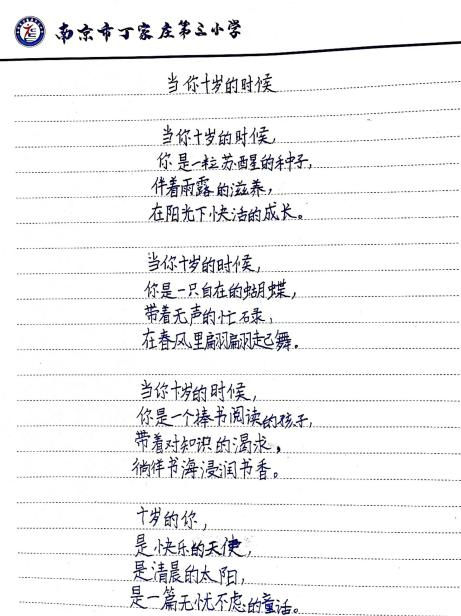 南京市丁家庄第三小学
当你十岁的时候
当你十岁的时候，
你是一粒苏醒的种子，
伴着雨露的滋养，
在阳光下快活的成长。
当你十岁的时候，
你是一只自在的蝴蝶，
带着无声的忙碌，
在春风里翩翩起舞。
当你十岁的时候，
你是一个捧书阅读的孩子，
带着对知识的渴求，
徜徉书海浸润书香。
十岁的你，
是快乐的天使，
是清晨的太阳，
是一篇无忧不虑的童话。